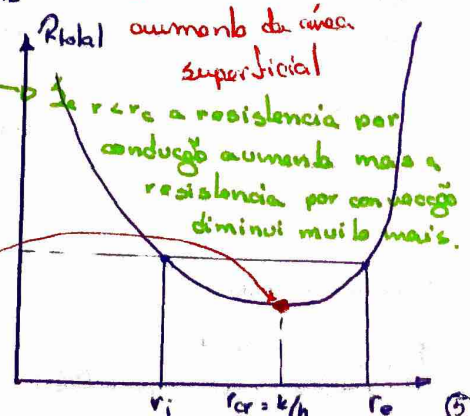 Rtotal
aumento da área
superficial
Se r<rc a resistencia por
condução aumenta mas a
resistencia por convecção
diminui muito mais.
ri
rcr = k/h
re
(5)